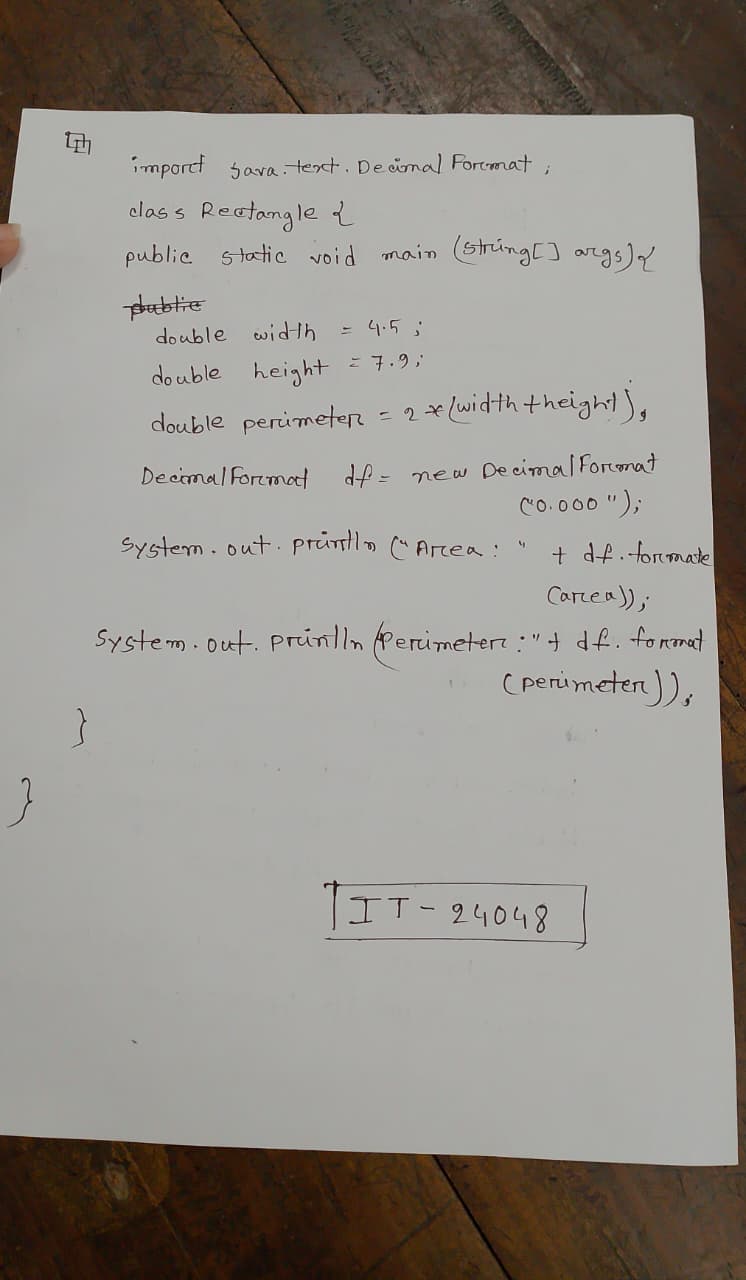 import java.text.DecimalFormat;
class Rectangle {
public static void main (string[] args){
public
double width = 4.5;
double height = 7.9;
double perimeter = 2*(width+height);
DecimalFormat df = new DecimalFormat
("0.000");
System.out.println ("Area: " + df.formate
(area));
System.out.println (Perimeter:"+ df.format
(perimeter));
}
}
IT-24048